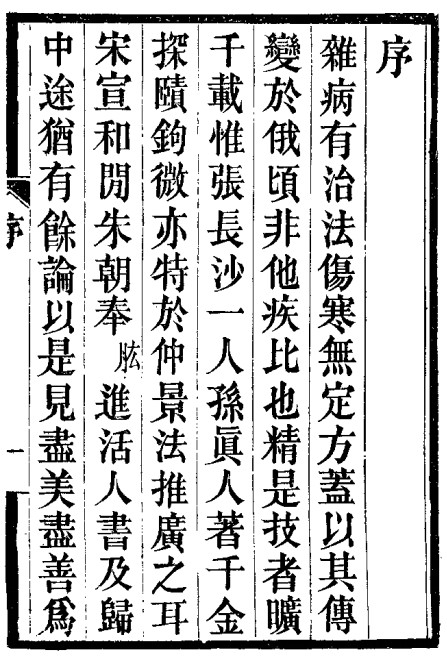 序
雜病有治法傷寒無定方蓋以其傳
變於俄頃非他疾比也精是技者曠
千載惟張長沙一人孫眞人著千金
探賾鉤微亦特於仲景法推廣之耳
宋宣和閒朱朝奉肱進活人書及歸
中途猶有餘論以是見盡美盡善爲
序
一